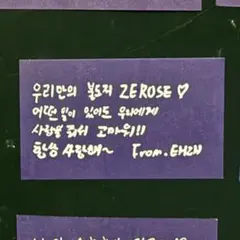 우리만의 불도저 ZEROSE ♡
어떤 일이 있어도 우리에게
사랑을 줘서 고마워!!
항상 사랑해~ From.